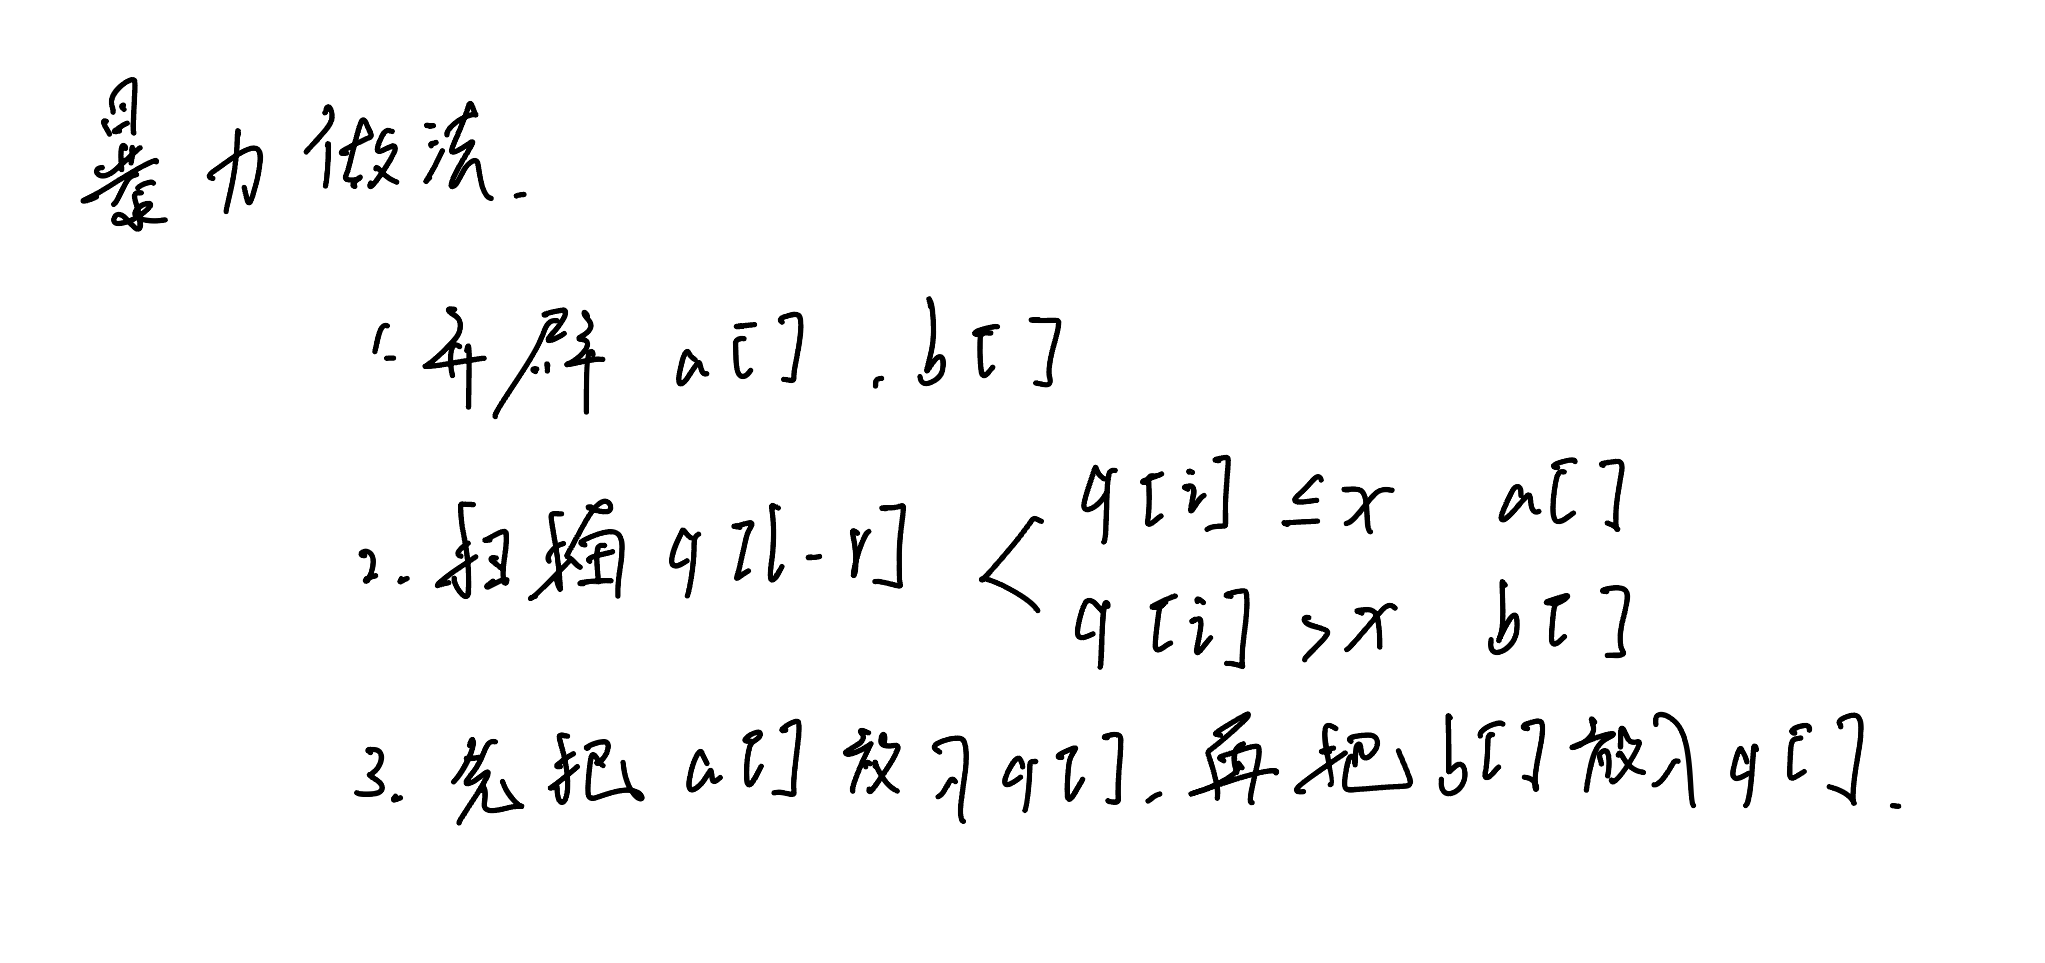 暴力做法.
1. 开辟 a[] . b[]
2. 扫描 q[l-r] < q[i] ≤x a[]
q[i] >x b[]
3. 先把 a[] 放入q[]. 再把 b[] 放入q[].